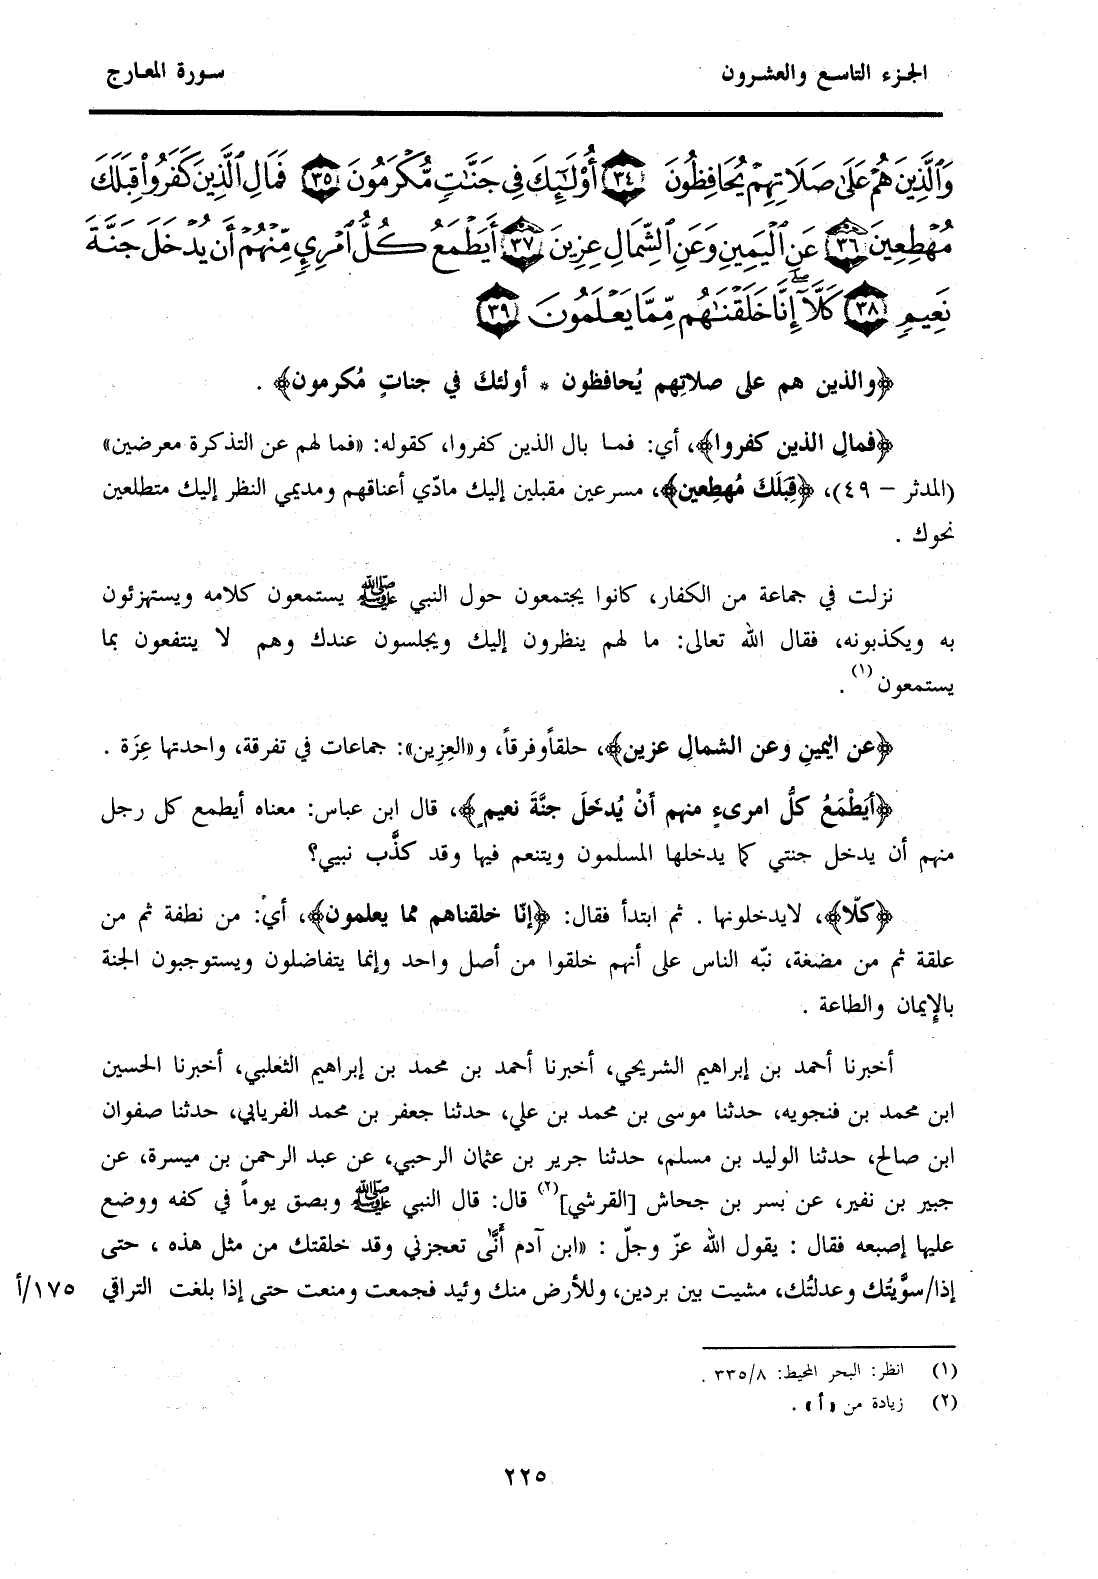 الجزء التاسع والعشرون
سورة المعارج
وَٱلَّذِينَ هُمْ عَلَىٰ صَلَاتِهِمْ يُحَافِظُونَ ٣٤ أُوْلَٰٓئِكَ فِى جَنَّٰتٍ مُّكْرَمُونَ ٣٥ فَمَالِ ٱلَّذِينَ كَفَرُواْ قِبَلَكَ
مُهْطِعِينَ ٣٦ عَنِ ٱلْيَمِينِ وَعَنِ ٱلشِّمَالِ عِزِينَ ٣٧ أَيَطْمَعُ كُلُّ ٱمْرِىٍٕ مِّنْهُمْ أَن يُدْخَلَ جَنَّةَ
نَعِيمٍ ٣٨ كَلَّآ ۖ إِنَّا خَلَقْنَٰهُم مِّمَّا يَعْلَمُونَ ٣٩
﴿والذين هم على صلاتِهم يُحافظون * أولئكَ في جناتٍ مُكرمون﴾ .
﴿فمالِ الذين كفروا﴾، أي: فمـا بال الذين كفروا، كقوله: «فما لهم عن التذكرة معرضين»
(المدثر – ٤٩)، ﴿قِبَلَكَ مُهطِعين﴾، مسرعين مقبلين إليك مادّي أعناقهم ومديمي النظر إليك متطلعين
نحوك .
نزلت في جماعة من الكفار، كانوا يجتمعون حول النبي ﷺ يستمعون كلامه ويستهزئون
به ويكذبونه، فقال الله تعالى: ما لهم ينظرون إليك ويجلسون عندك وهم لا ينتفعون بما
يستمعون(١) .
﴿عن اليمينِ وعن الشمالِ عزين﴾، حلقاًوفرقاً، و«العِزِين»: جماعات في تفرقة، واحدتها عِزَة .
﴿أيَطْمَعُ كلُّ امرىءٍ منهم أنْ يُدخَلَ جنَّةَ نعيمٍ﴾، قال ابن عباس: معناه أيطمع كل رجل
منهم أن يدخل جنتي كما يدخلها المسلمون ويتنعم فيها وقد كذَّب نبيي؟
﴿كلّا﴾، لايدخلونها . ثم ابتدأ فقال: ﴿إنّا خلقناهم مما يعلمون﴾، أي: من نطفة ثم من
علقة ثم من مضغة، نبّه الناس على أنهم خلقوا من أصل واحد وإنما يتفاضلون ويستوجبون الجنة
بالإيمان والطاعة .
أخبرنا أحمد بن إبراهيم الشريحي، أخبرنا أحمد بن محمد بن إبراهيم الثعلبي، أخبرنا الحسين
ابن محمد بن فنجويه، حدثنا موسى بن محمد بن علي، حدثنا جعفر بن محمد الفريابي، حدثنا صفوان
ابن صالح، حدثنا الوليد بن مسلم، حدثنا جرير بن عثمان الرحبي، عن عبد الرحمن بن ميسرة، عن
جبير بن نفير، عن بسر بن جحاش [القرشي](٢) قال: قال النبي ﷺ وبصق يوماً في كفه ووضع
عليها إصبعه فقال : يقول الله عزّ وجلّ : «ابن آدم أنَّى تعجزني وقد خلقتك من مثل هذه ، حتى
إذا/سوَّيتُك وعدلتُك، مشيت بين بردين، وللأرض منك وئيد فجمعت ومنعت حتى إذا بلغت التراقي ١٧٥/أ
(١) انظر: البحر المحيط: ٣٣٥/٨ .
(٢) زيادة من «أ» .
٢٢٥